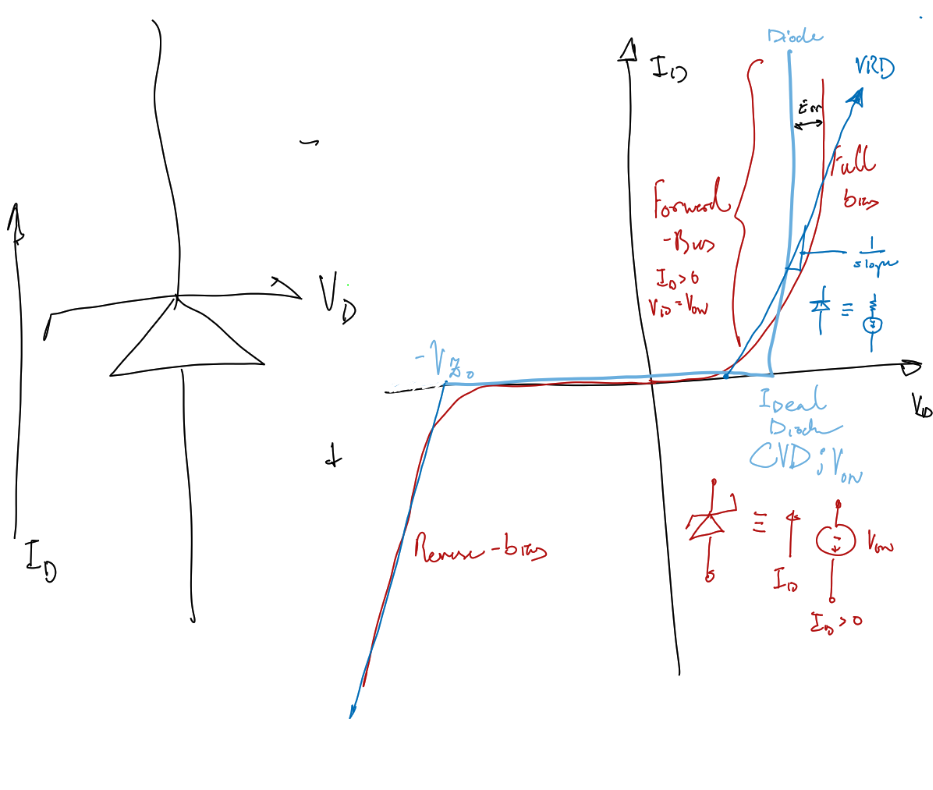 -
V_D
+
I_D
I_D
Diode
VRD
Err
Full
bias
Forward
-Bias
I_D>0
V_D=V_ON
1
slope
≡
-V_Zo
V_D
Ideal
Diode
CVD; V_ON
Reverse-bias
≡
I_D
V_ON
I_D>0